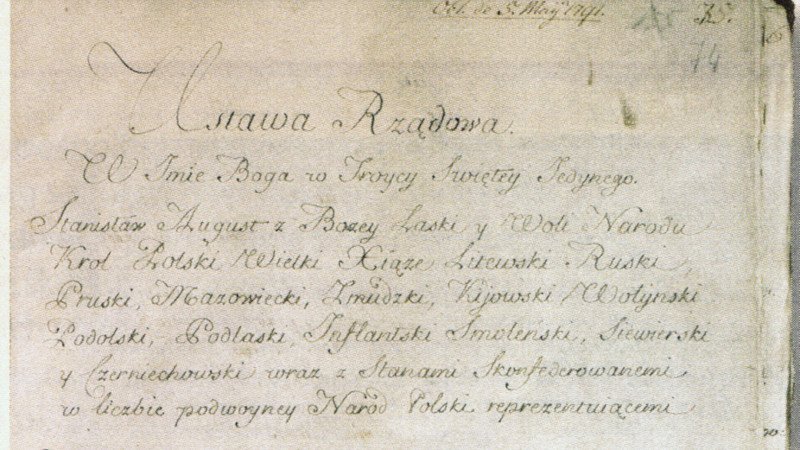 Obl. de 5. Maij 1791.
75.
74
Ustawa Rządowa.
W Imie Boga w Troycy Swiętey Jedynego.
Stanisław August z Bozey Łaski y Woli Narodu
Krol Polski Wielki Xiąze Litewski Ruski,
Pruski, Mazowiecki, Zmudzki, Kijowski Wołyński
Podolski, Podlaski, Inflantski Smoleński, Siewierski
y Czerniechowski wraz z Stanami Skonfederowanemi
w liczbie podwoyney Naród Polski reprezentuiącemi